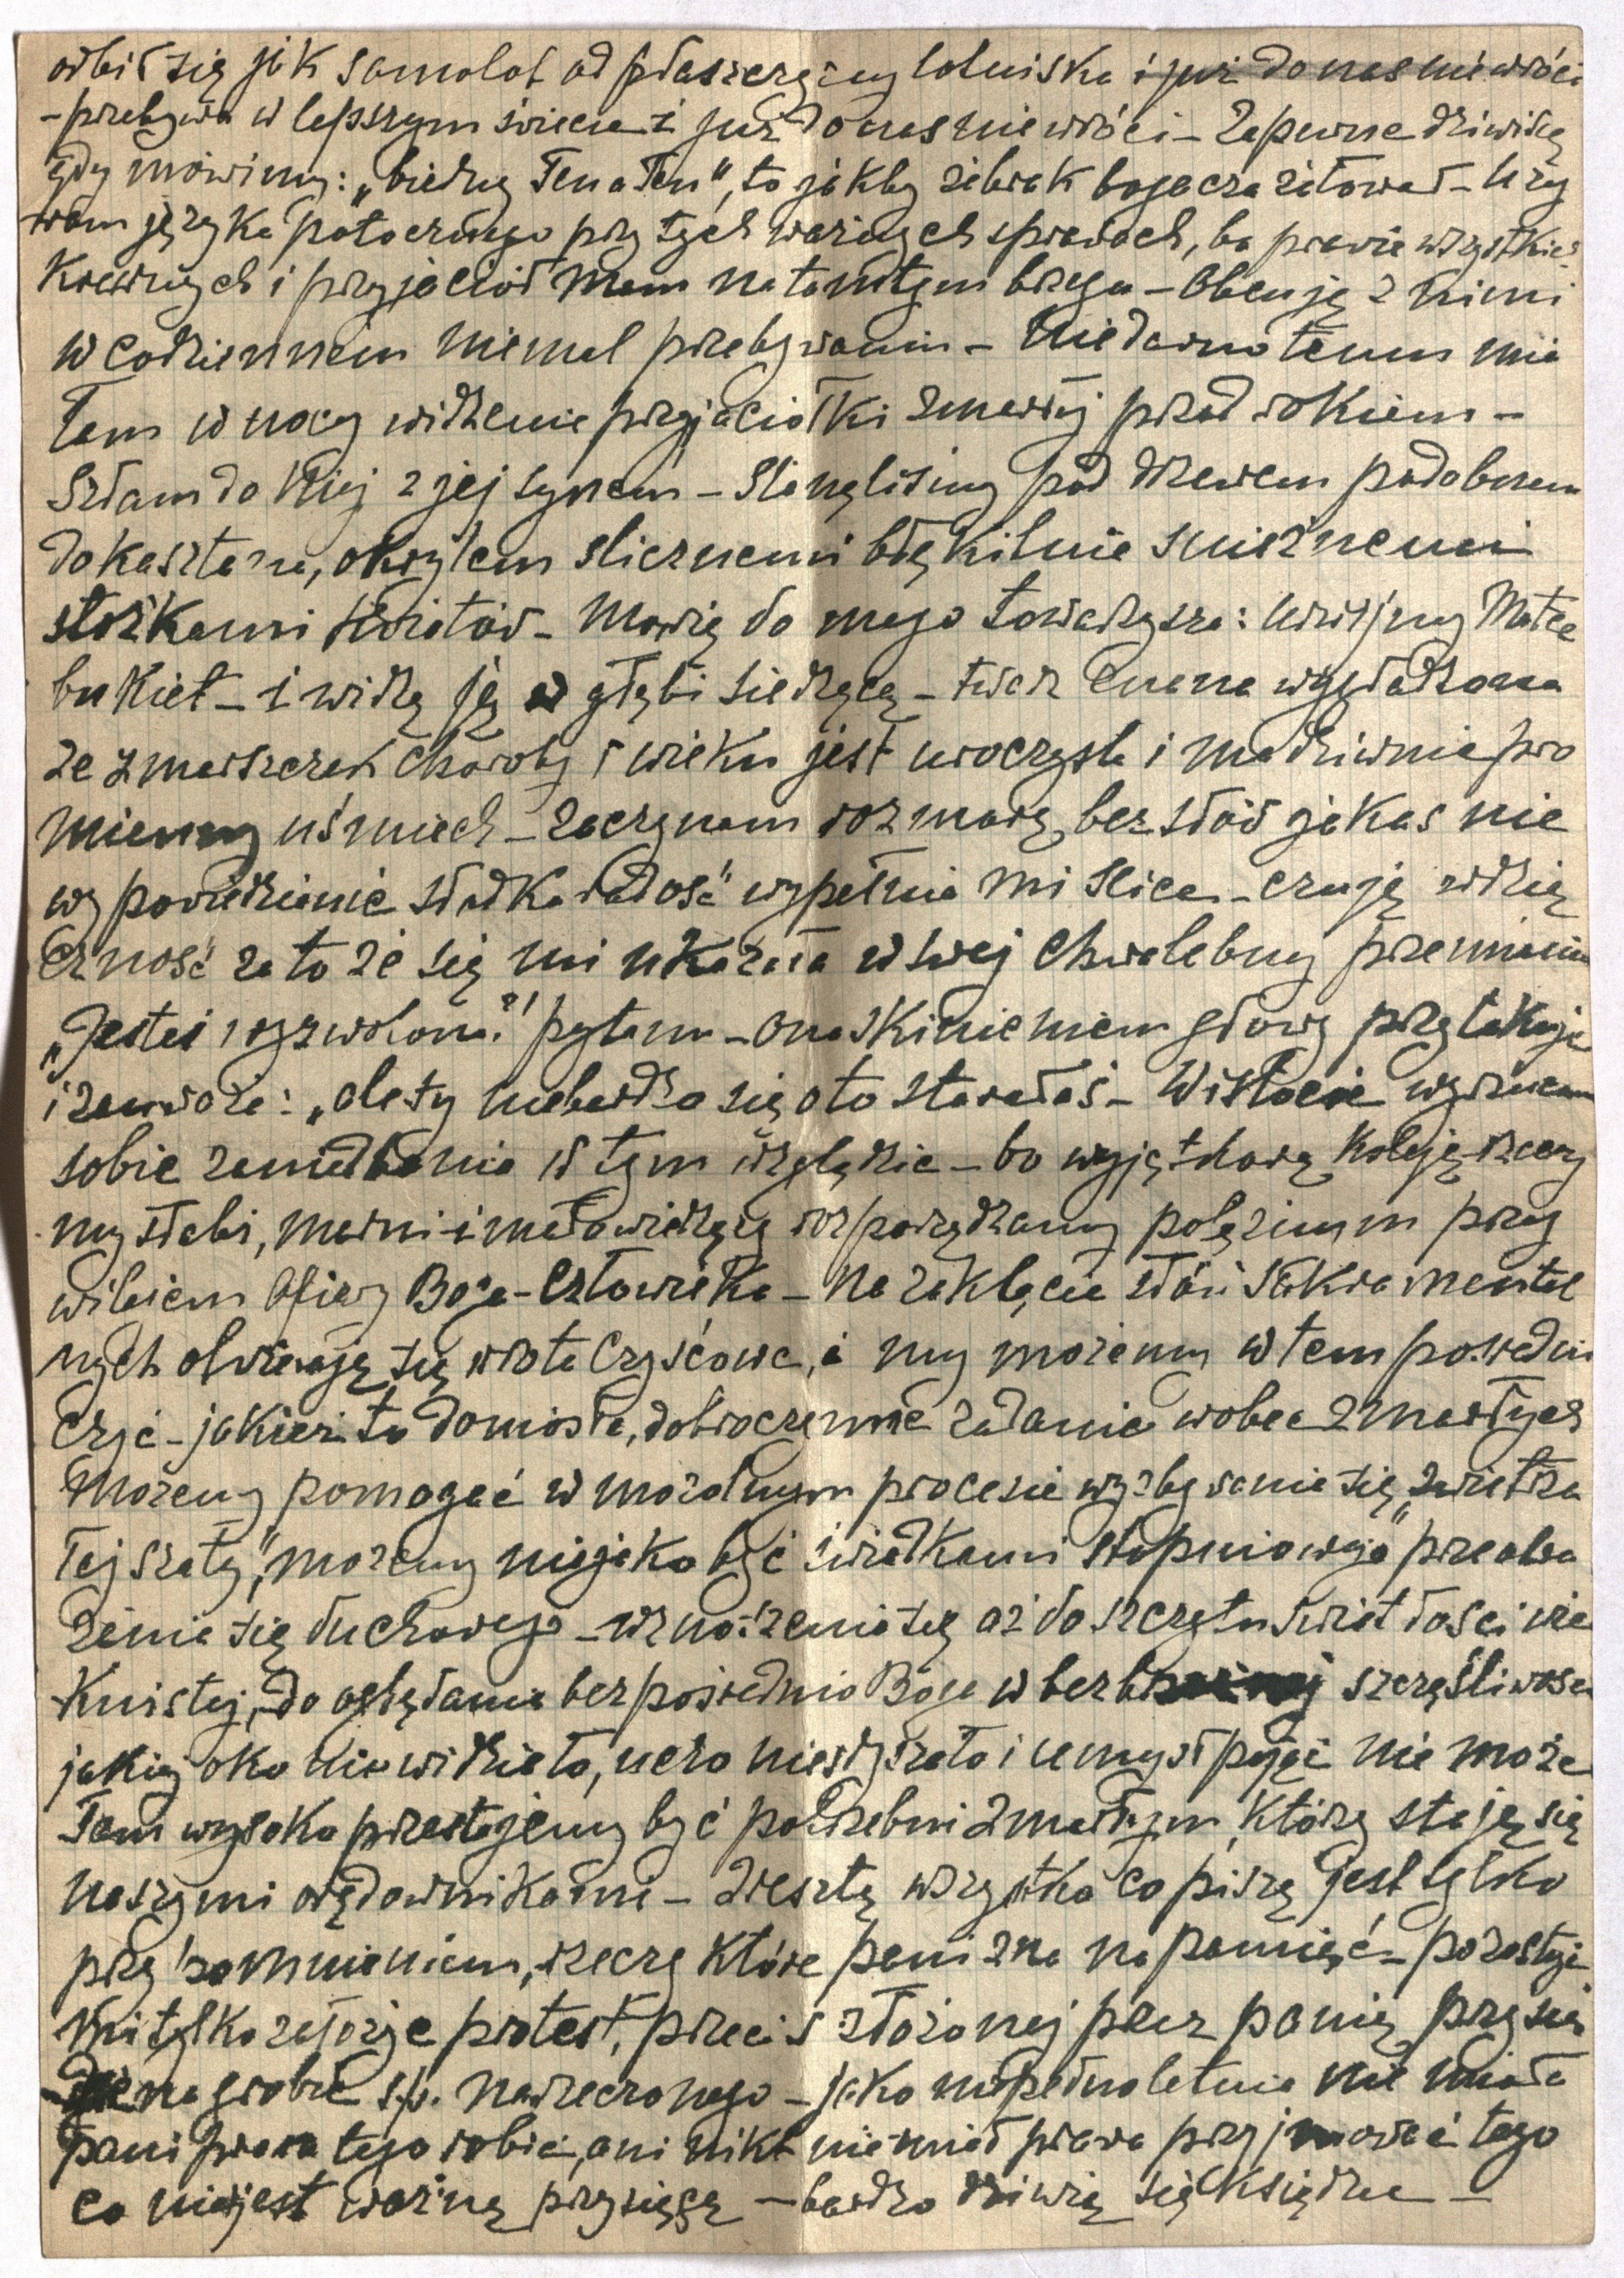 odbił się jak samolot od płaszczyzny lotniska i już do nas nie wróci
- przebywa w lepszym świecie i już do nas nie wróci - Zapewne dziwi się
gdy mówimy: „biedny Ten a Ten", to jakby żebrak bogacza żałował - Uży
wam języka potocznego przy tych ważnych sprawach, ba prawie wszystkich
krewnych i przyjaciół mam na tamtym brzegu - Obcuję z nimi
w codziennem niemal przebywaniu - Niedawno temu mia
łam w nocy widzenie przyjaciółki zmarłej przed rokiem -
Szłam do Niej z jej synem - Stanęliśmy pod drzewem podobnem
do kasztana, okrytem ślicznemi błękitnie śnieżnemi
stożkami kwiatów - Mówię do mego towarzysza: Urwijmy Matce
bukiet - i widzę ją w głębi siedzącą - twarz znana wygładzona
ze zmarszczek choroby i wieku jest uroczysta i ma dziwnie pro
mienny uśmiech - Zaczynam rozmowę, bez słów jakaś nie
wypowiedzianie słodka radość wypełnia mi serce - czuję wdzię
czność za to że się mi ukazała w swej chwalebnej przemianie
„Jesteś wyzwolona?" pytam - Ona skinieniem głowy przytakuje
i zauważa: „ale ty nie bardzo się o to starałaś - W istocie wyrzucam
sobie zaniedbania w tym względzie - bo wyjątkową koleją rzeczy
my słabi, marni i mało wiedzący rozporządzamy potężnym przy
wilejem Ofiary Boga-Człowieka - Na zaklęcie słów Sakramental
nych otwierają się wrota Czyśćowe, i my możemy w tem pośredni
czyć - jakież to doniosłe, dobroczynne zadanie wobec zmarłych
Możemy pomagać w mozolnym procesie wyzbywania się „zwietrza
łej szaty", możemy niejako być świadkami stopniowego przeobra
żenia się duchowego - wznoszenia się aż do szczytu światłości wie
kuistej, do oglądania bezpośrednio Boga w szczęśliwości
jakiej oko nie widziało, ucho nie słyszało i umysł pojąć nie może
Tam wysoko przestajemy być potrzebni zmarłym, którzy stają się
naszymi orędownikami - Zresztą wszystko co piszę jest tylko
przypomnieniem, rzeczy które pani zna na pamięć - pozostaje
mi tylko założyć protest, przeciw złożonej przez panią przysię
dze na grobie ś.p. narzeczonego - jako niepełnoletnia nie miała
pani prawa tego robić, ani nikt nie miał prawa przyjmować tego
co nie jest ważną przysięgą - bardzo dziwię się księdzu -